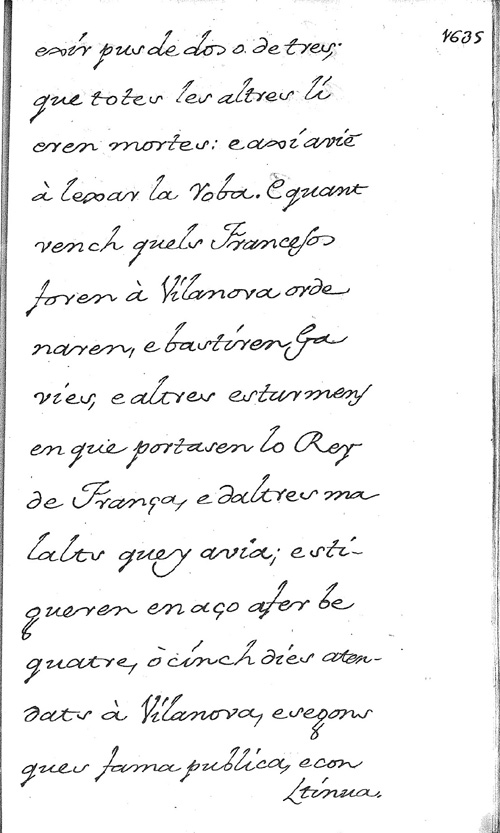 1635
exir pus de dos o. de tres;
que totes les altres li
eren mortes: e axi avie
à lexar la roba. E quant
vench quels Francesos
foren à Vilanova orde
naren, e bastiren, Ga
vies, e altres esturmens
en que portasen lo Rey
de França, e daltres ma
lalts quey avia; e sti-
gueren en aço afer be
quatre, ò cinch dies aten-
dats à Vilanova, e segons
ques fama publica, e con
tinua.